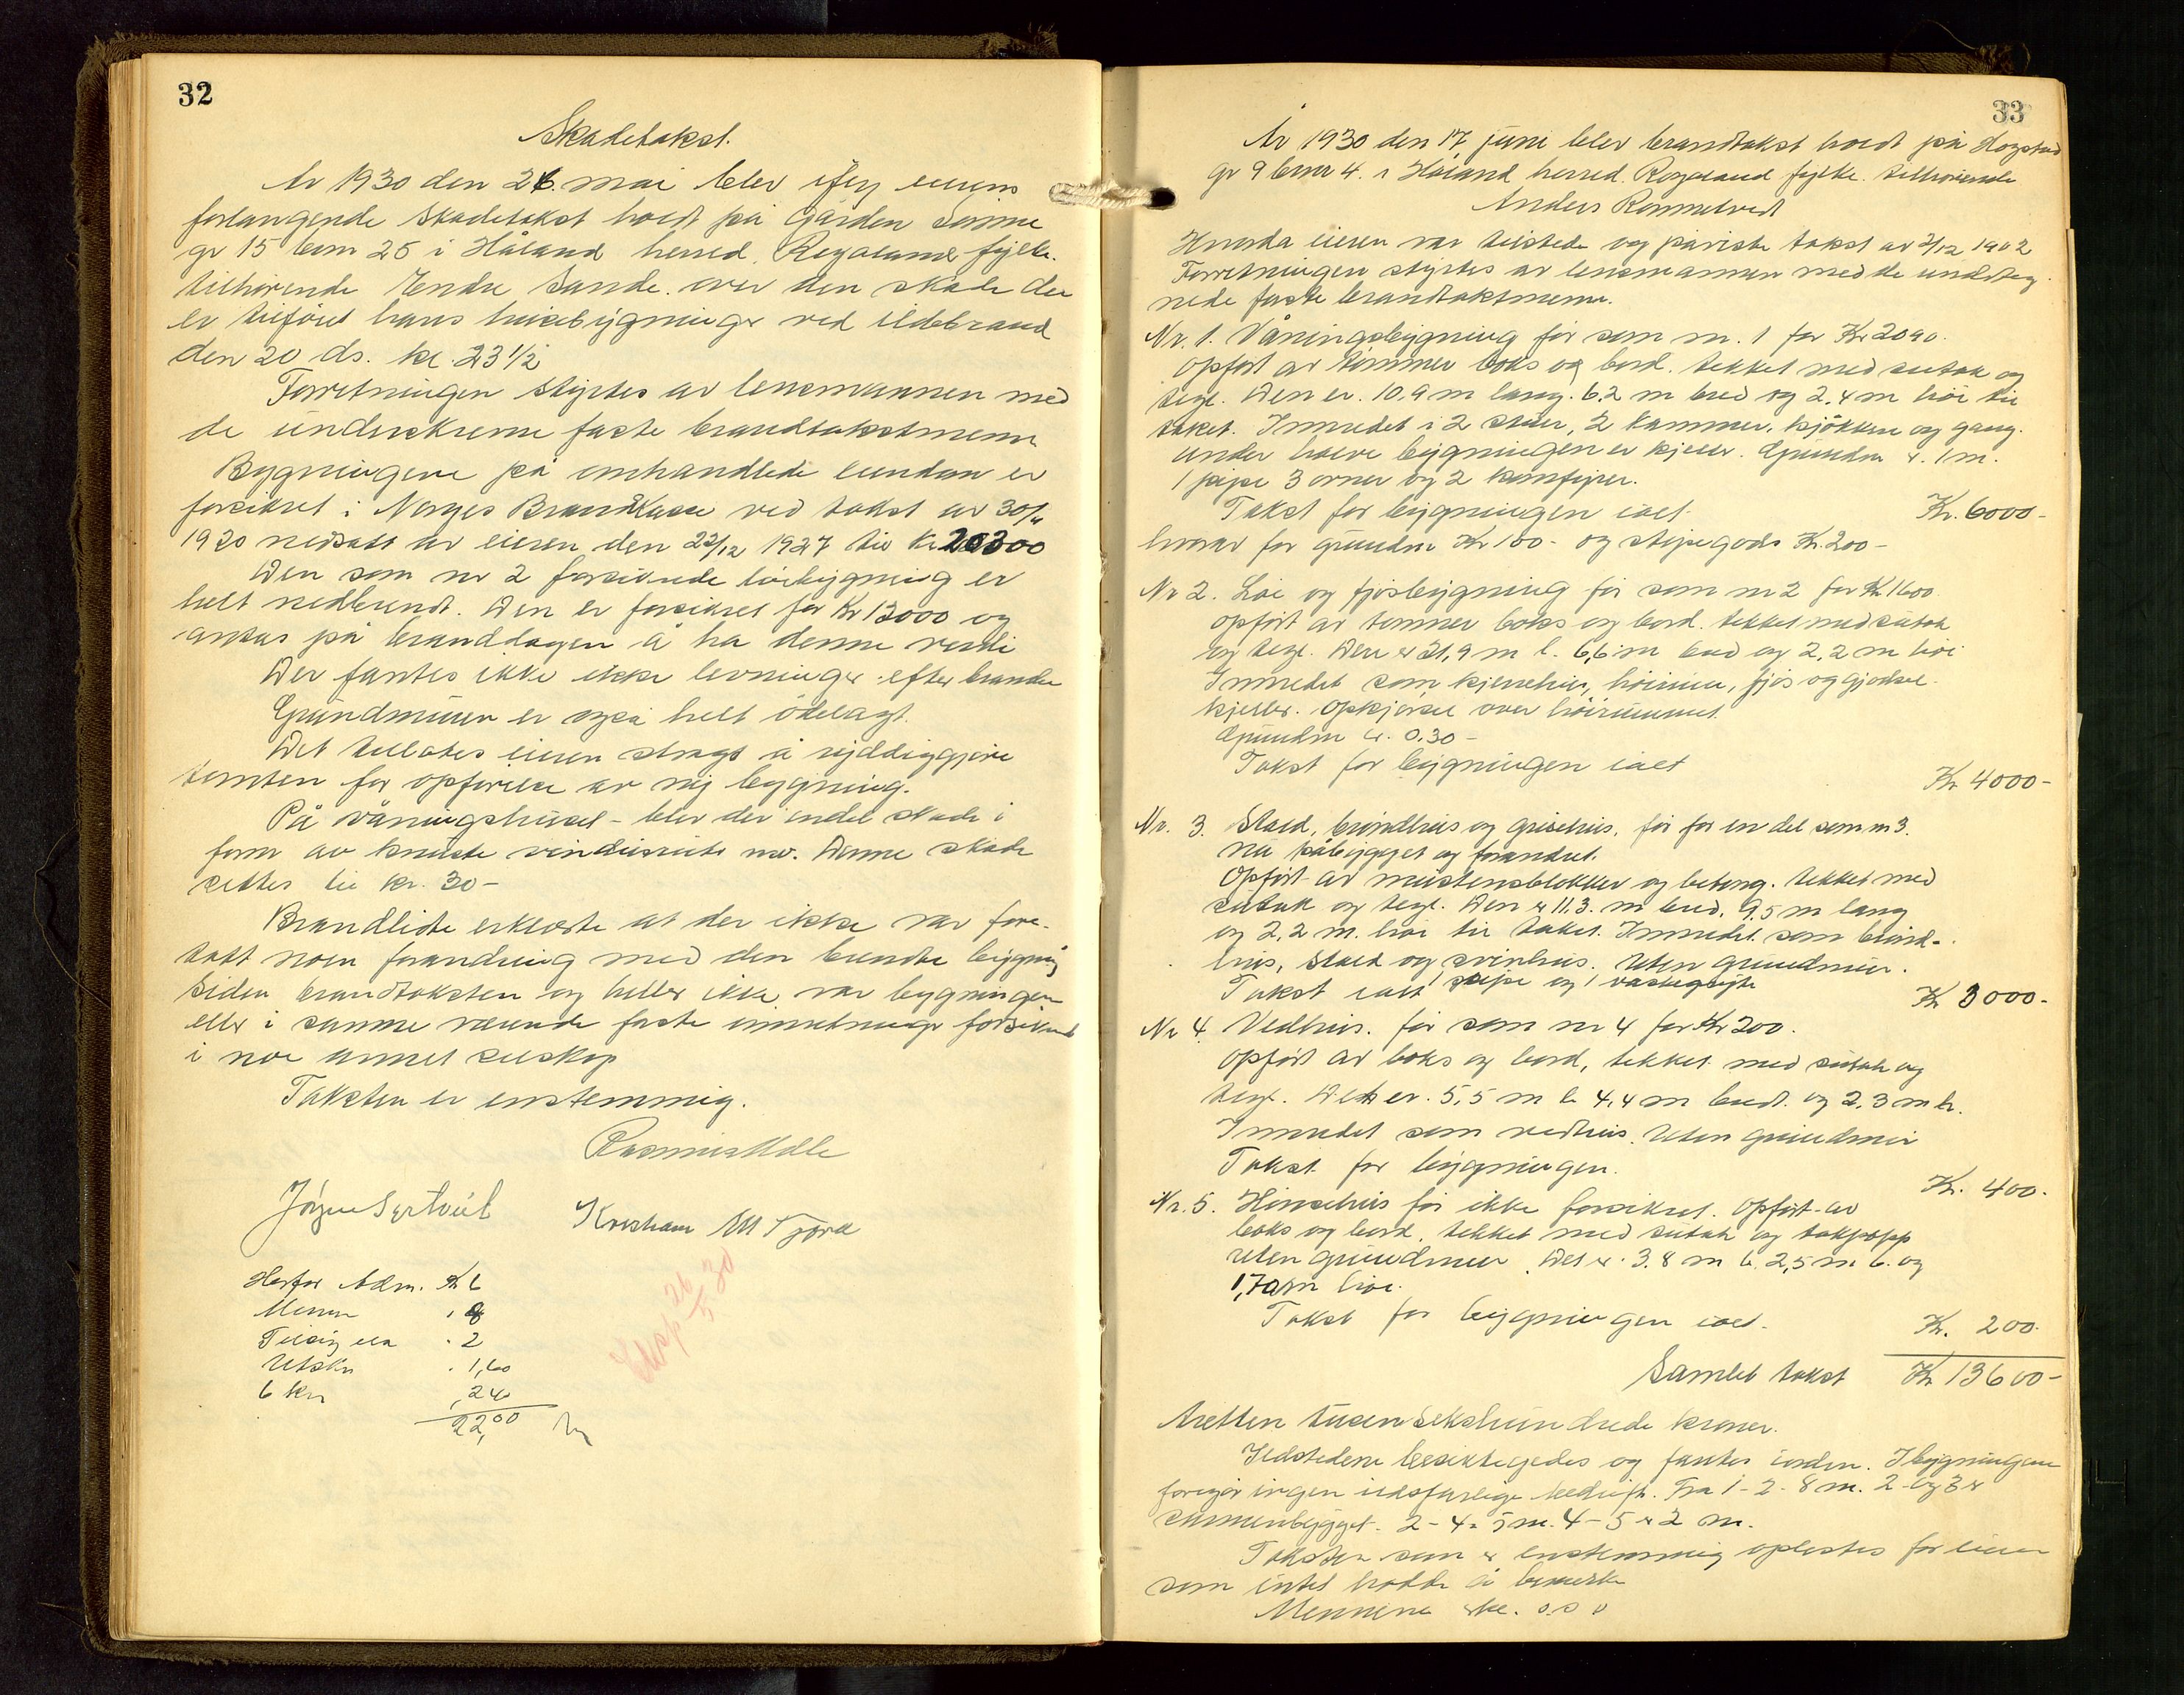 32
Skadetakst.
År 1930 den 26. mai blev ifølg eierens
forlangende skadetakst holdt på gården Sømme
gr 15 brn 25 i Håland herred, Rogaland fylke.
tilhørende Endre Sande. over den skade der
er tilføiet hans husebygninger ved ildebrand
den 20 ds. kl. 23 1/2
Forretningen styrtes av lensmannen med
de underskrevne faste brandtakstmenn
Bygningene på omhandlede eiendom er
forsikret i Norges Brandkasse ved takst av 30/
1920 nedsatt av eieren den 22/12 1927 til Kr 20300
Den som nr 2 forsikrede løebygning er
helt nedbrendt. Den er forsikret for Kr 13000 og
antas på branddagen å ha denne verdi
Der fantes ikke ikke levninger efter branden
Grundmuren er også helt ødelagt.
Det tillates eieren strags å ryddiggjøre
tomten for opførelse av ny bygning.
På våningshuset - blev der endel skade i
form av knuste vindusruter mv. Denne skade
settes til kr. 30-
Brandlidte erklærte at der ikke var fore-
tatt noen forandring med den brendte bygning
siden brandtaksten og heller ikke var bygningen
eller i samme værende faste innretninger forsikret
i noe annet selskap
Taksten er enstemmig.
Rasmus Molle
Jørgen Syrtveit Kristian M Tjora
Herfor Adm. Kr 6
Menn " 8
Tilsig " 2
Utskr " 1,60
6 km " 2 40
22,00
Eksp 26/5 30
33
År 1930 den 17 juni blev brandtakst holdt på Hogstad
gr 9 brnr 4. i Håland herred. Rogaland fylke. tilhørende
Anders Rommetvedt
Hvorda eieren var tilstede og påviste takst av 2/12 1902
Forretningen styrtes av lensmannen med de underteg
nede faste brandtakstmenn.
Nr. 1. Våningsbygning før som nr. 1 for Kr 2090.
opført av tømmer boks og bord. tekket med sutak og
tegl. Den er. 10.9 m lang. 6.2 m bred og 2,4 m høi til
taket. Innredet i 2 stuer, 2 kammer, kjøkken og gang.
under halve bygningen er kjeller. Grundm. er. 1 m.
1 pipe 3 ovner og 2 komfyrer.
Takst for bygningen ialt. Kr. 6000-
hvorav for grundm Kr 100- og støpegods Kr. 200-
Nr 2. Løe og fjøsbygning før som nr 2 for Kr 1600.
opført av tømmer boks og bord. tekket med sutak
og tegl. Den er 21,9 m l. 6,6 m bred og 2,2 m høi
Innredet som kjørehus, høirum, fjøs og gjødsel-
kjeller. Opkjørsel over høirummet.
Grundm er. 0.30-
Takst for bygningen ialt Kr 4000-
Nr. 3. Stald, brendhus og grisehus. før for en del som nr 3.
nu påbygget og forandret.
Opført av murstensblokker og betong. tekket med
sutak og tegl. Den er 11.3. m bred. 9,5 m lang
og 2,2 m. høi til taket. Innredet som brend-
hus, stald og svinhus. Uten grundmur.
Takst ialt 1 pipe og 1 vaskegryte Kr 3000-
Nr 4. Vedhus. før som nr 4 for Kr 200.
opført av boks og bord, tekket med sutak og
tegl. Det er. 5,5 m l. 4,4 m bredt og 2,3 m h.
Innredet som vedhus. Uten grundmur
Takst for bygningen. Kr. 400.
Nr. 5. Hønsehus før ikke forsikret. opført av
boks og bord. tekket med sutak og takpapp
uten grundmur. Det er. 3.8 m l. 2,5 m b. og
1,70 m høi.
Takst for bygningen ialt. Kr. 200.
Samlet takst Kr 13600-
tretten tusen sekshundrede kroner.
Ildstedene besiktigedes og fantes iorden. I bygningene
foregår ingen ildsfarlige bedrift. Fra 1-2-8 m. 2-og 3 er
sammenbygget. 2-4 = 5 m. 4-5 er 2 m.
Taksten som er enstemmig oplestes for eieren
som intet hadde å bemerke
Mennene